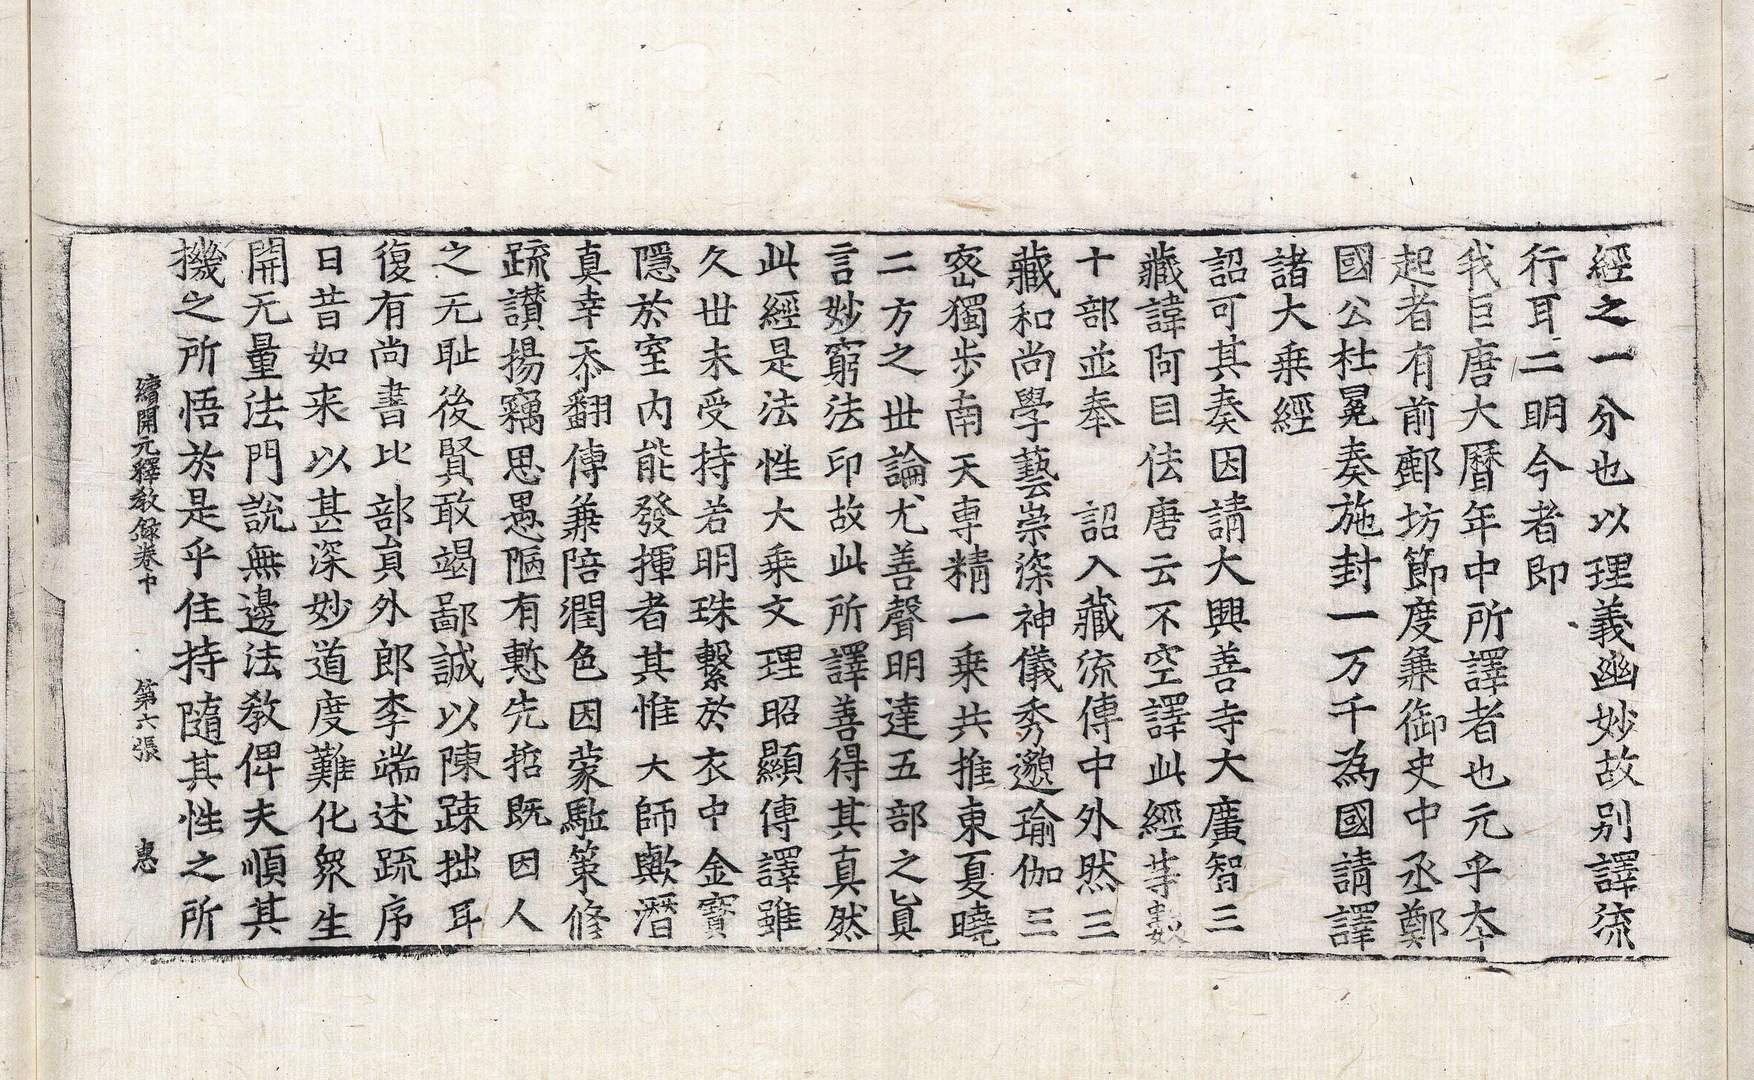 經之一分也以理義幽妙故別譯流
行耳二明今者即
我巨唐大曆年中所譯者也元乎夲
起者有前鄜坊節度兼御史中丞鄭
國公杜冕奏施封一万千為國請譯
諸大乘經
詔可其奏因請大興善寺大廣智三
藏諱阿目佉唐云不空譯此經等數
十部並奉 詔入藏流傳中外然三
藏和尚學藝崇深神儀秀邈瑜伽三
密獨步南天專精一乘共推東夏曉
二方之世論尤善聲明達五部之真
言妙窮法印故此所譯善得其真然
此經是法性大乘文理昭顯傳譯雖
久世未受持若明珠繫於衣中金寶
隱於室內能發揮者其惟大師歟潛
真幸忝翻傳兼陪潤色因蒙駈策修
疏讃揚竊思愚陋有慙先哲既因人
之无耻後賢敢竭鄙誠以陳踈拙耳
復有尚書比部貟外郎李端述疏序
日昔如来以甚深妙道度難化衆生
開无量法門說無邊法教俾夫順其
機之所悟於是乎住持隨其性之所
續開元釋教錄卷中 第六張 惠